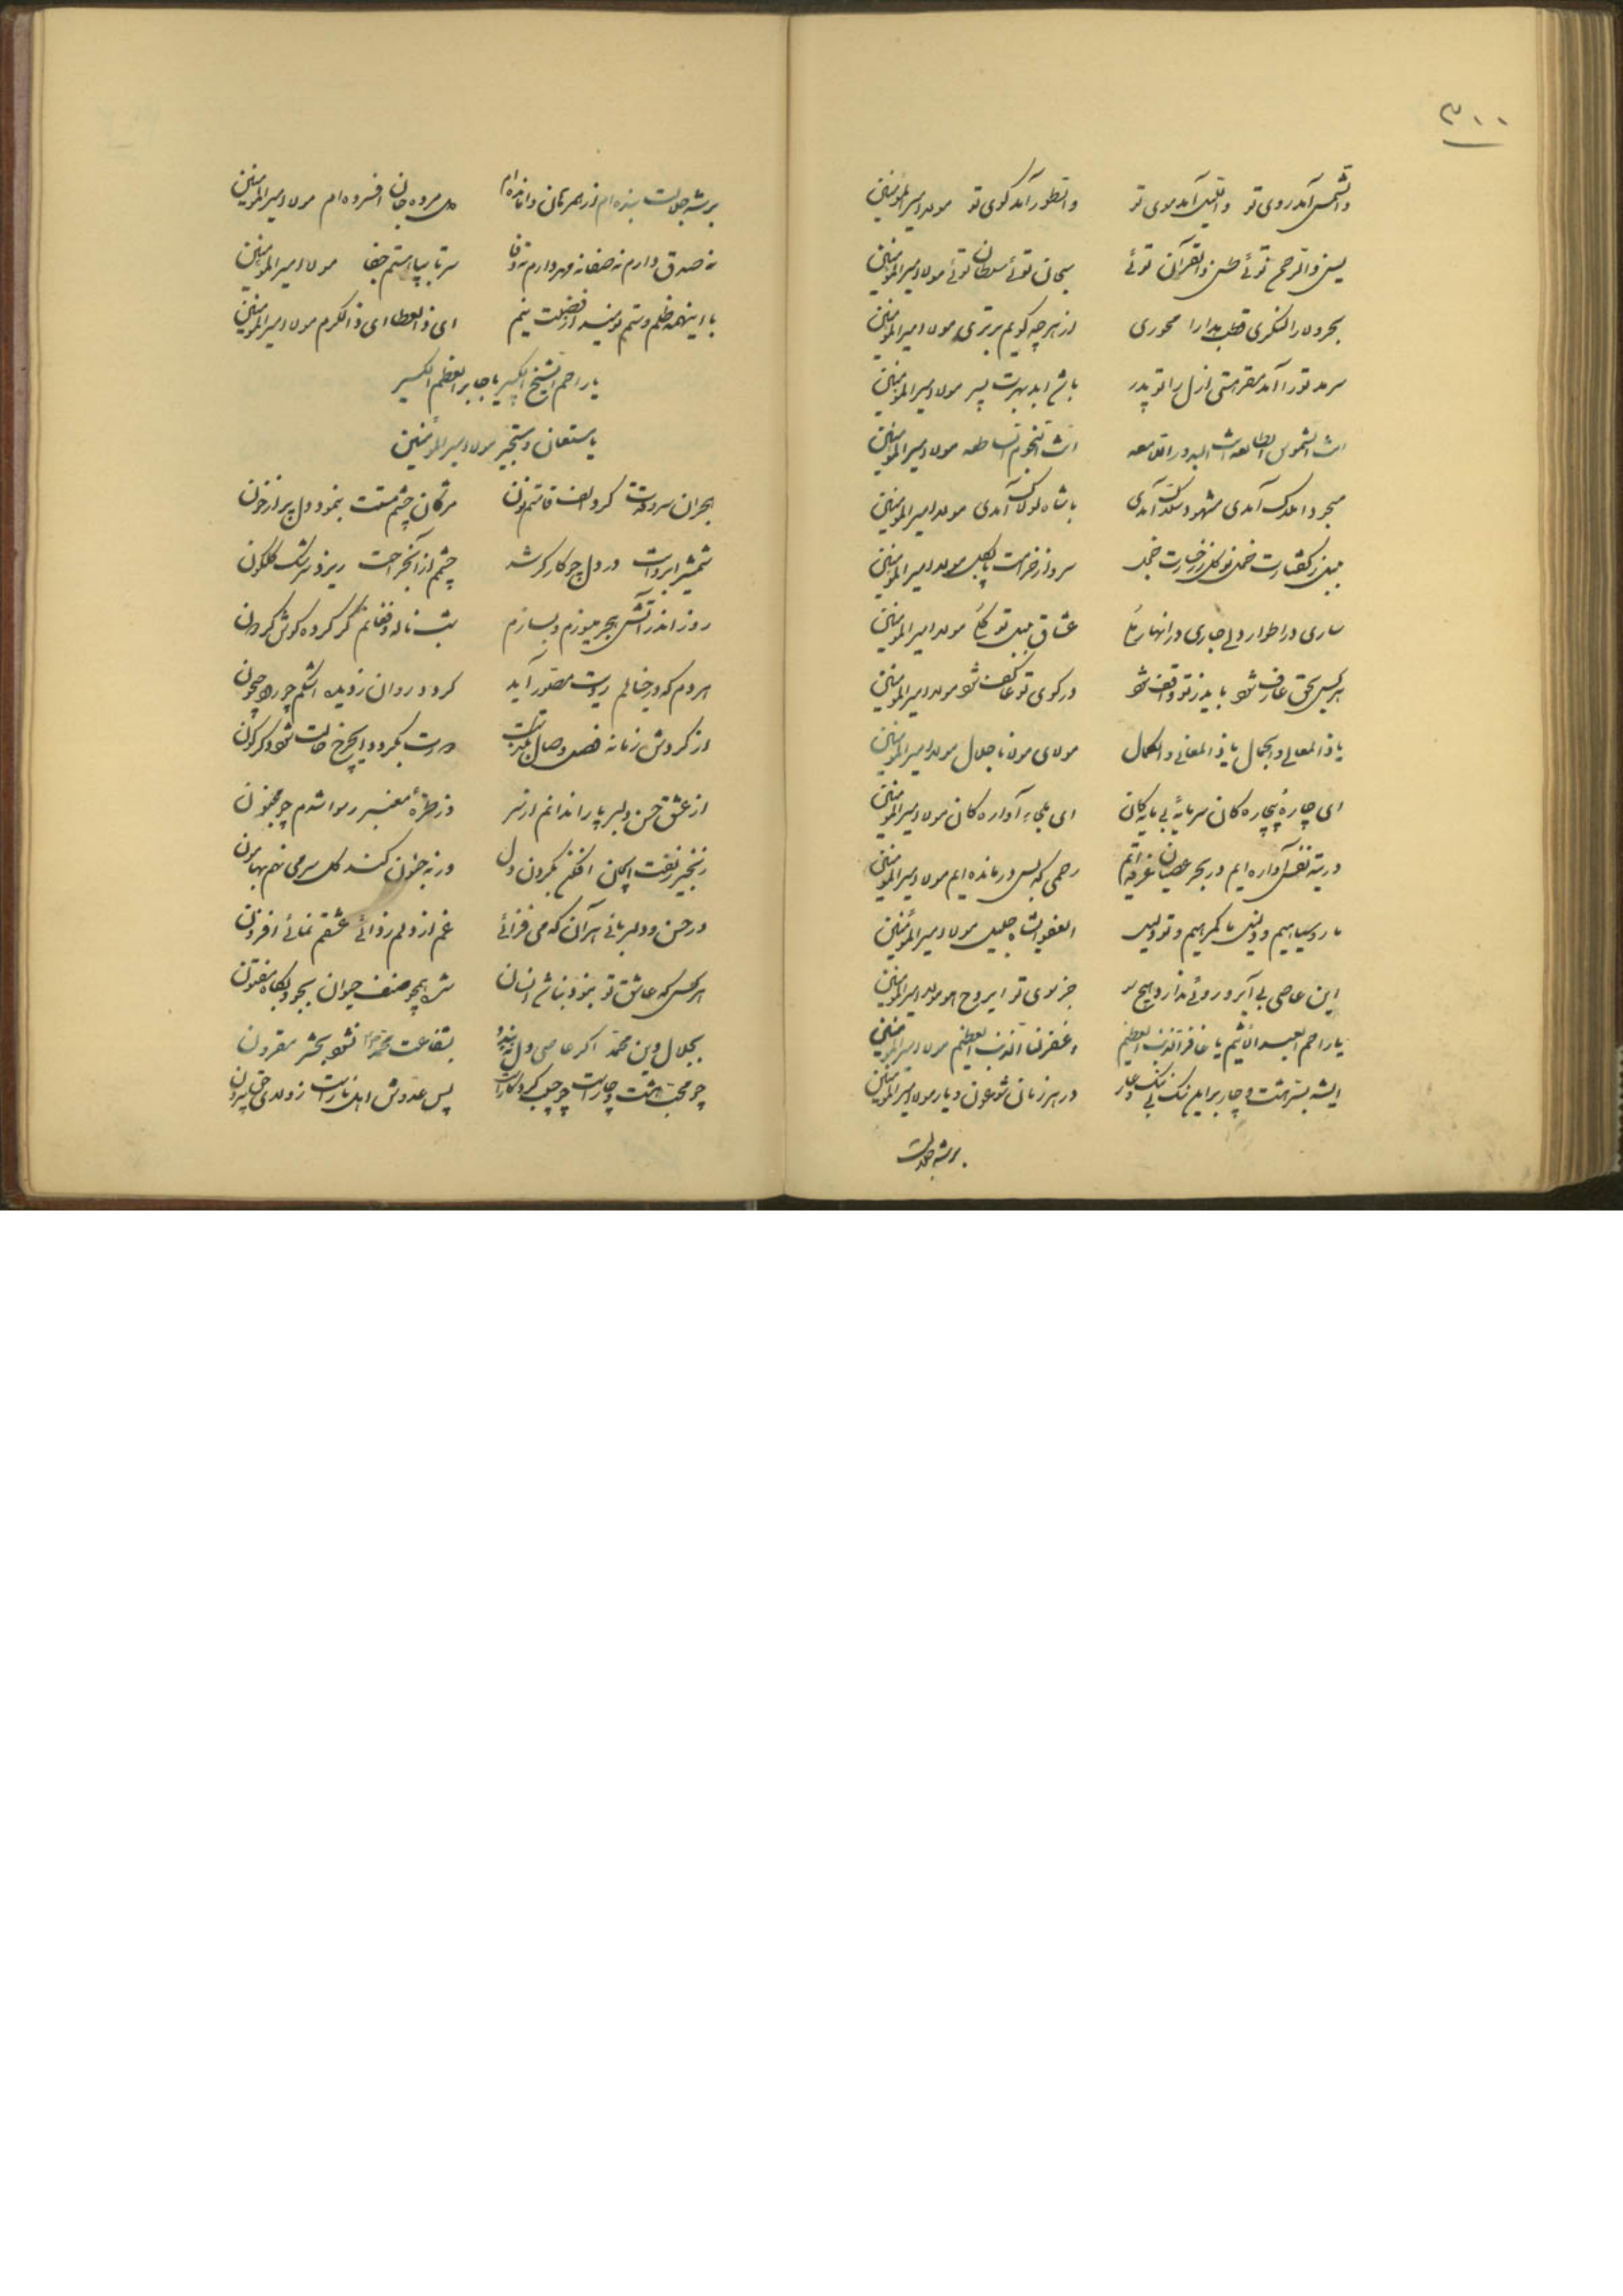 ۳۰۰
والشمس آمد روی تو واللیل آمد موی تو والطور آمد کوی تو مولا امیرالمؤمنین
یس والرحمن توئی طس والقرآن توئی سبحان توئی سلطان توئی مولا امیرالمؤمنین
بحر ولا را لنگری قطب مدارا محوری از هرچه گویم برتری مولا امیرالمؤمنین
سرمد تو را آمد مقر هستی ازل را تو پدر باشد ابد بهرت پسر مولا امیرالمؤمنین
انت الشموس الطالعه انت البدور اللامعه انت النجوم الساطعه مولا امیرالمؤمنین
مسجود املاک آمدی مشهود آمدی با شاه لولاک آمدی مولا امیرالمؤمنین
بلبل ز گفتارت خجل گل ز رخسارت خجل سرو از مولا امیرالمؤمنین
ساری در اطوار ولی جاری در انهار عشاق مولا امیرالمؤمنین
هر کس بحق عارف شود باید ز تو واقف شود در کوی تو عاکف شود مولا امیرالمؤمنین
یا ذالمعالی والجمال یا ذالمعانی والکمال مولای مولانا جلال مولا امیرالمؤمنین
ای چاره بیچاره کان سرمایه بی مایه کان ای ملجاء آواره کان مولا امیرالمؤمنین
در تیه نفس آواره ایم در بحر عصیان غرقه ایم رحمی که بس درمانده ایم مولا امیرالمؤمنین
ما روسیاهیم و ذلیل ما گمرهیم و تو دلیل العفو ای شاه جلیل مولا امیرالمؤمنین
این عاصی بی آبرو روئی ندارد هیچ سو جز سوی تو ایروح هو مولا امیرالمؤمنین
یا راحم العبد الاثیم یا غافر الذنب العظیم وغفر لنا الذنب العظیم مولا امیرالمؤمنین
ایشه هشت و چار بر این در هر زمان شو عون و یار مولا امیرالمؤمنین
بر شه جلالت
بر شه جلالت بنده ام از همرهان وامانده ام دل مرده جان افسرده ام مولا امیرالمؤمنین
نه صدق دارم نه صفا نه مهر دارم نه وفا سر تا بپا هستم جفا مولا امیرالمؤمنین
با اینهمه ظلم و ستم نومید از فضلت نیم ای ذالعطا ای ذالکرم مولا امیرالمؤمنین
یا راحم الشیخ الکبیر یا جابر العظم الکسیر
یا مستعان و مستجیر مولا امیرالمؤمنین
هجران سرو قدت کرد الف قامتم نون مژگان چشم مستت بنمود دل پر از خون
شمشیر ابروانت در دل چو کارگر شد چشمم از آن جراحت ریزد سرشک گلگون
روز اندر آتش هجر میسوزم و بسازم شب ناله و فغانم کر کرده گوش گردون
هر دم که در خیالم رویت مصور آید گردد روان ز دیده اشکم چو رود جیحون
از گردش زمانه فصل و وصال دورت بگردد ایچرخ حالت شود دگرگون
از عشق حسن دلبر پا را ندانم از سر وز طره معنبر رسوا شدم چو مجنون
زنجیر زلفت ایجان افکن بگردن دل ورنه جنون کشد کل سر می نهم بهامون
در حسن و دلربائی هر آن که می فزائی غم از دلم زدائی عشقم نمائی افزون
هر کس که عاشق تو نبود نباشد انسان شد همچو صنف حیوان بجو و بکاه مفتون
بجلال دین محمد اگر عاصی دل بشفاعت محمد نشود بحشر مقرون
چو محب هشت و چار است پس عدوش اهل نار است ز ولای حق